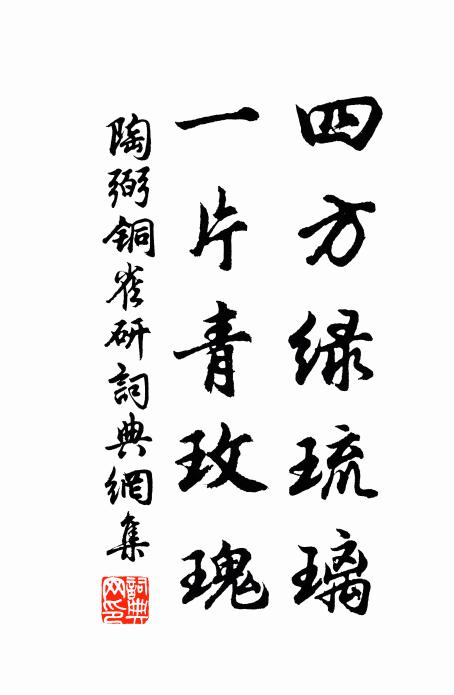 四方绿琉璃
一片青玫瑰
陶弼銅雀研詞典網集
詞典網印